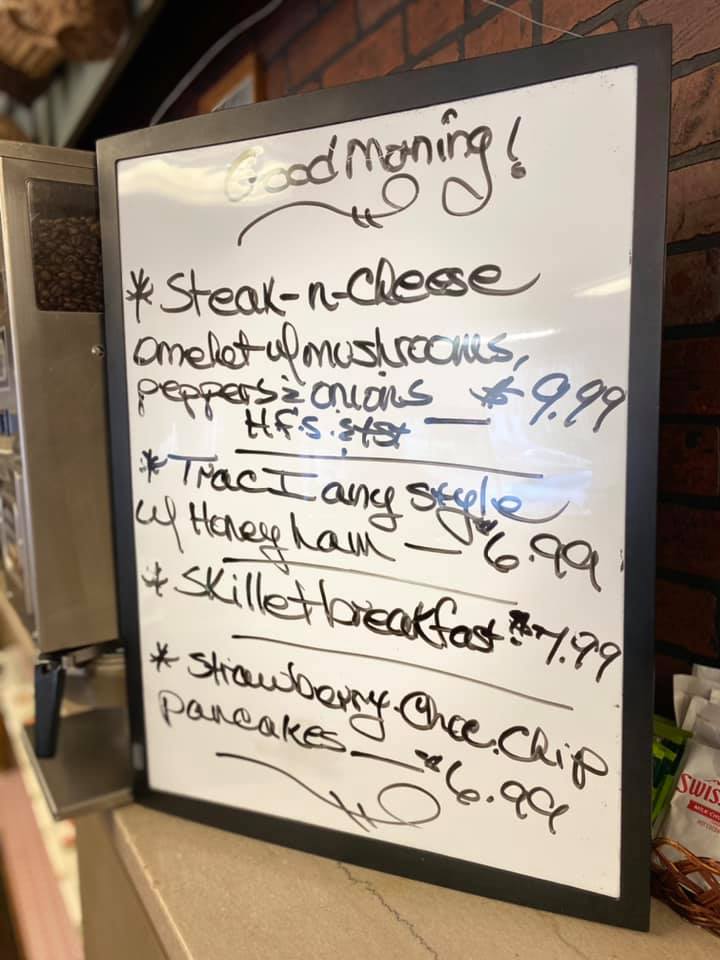 Good Morning!
* Steak-n-Cheese
omelet w/ mushrooms,
peppers & onions $9.99
H.F.S. & tst
* Trac I any style
w/ Honey ham — $6.99
* Skillet breakfast $7.99
* Strawberry. Choc. Chip
pancakes — $6.99
SWIS
MILK CHO